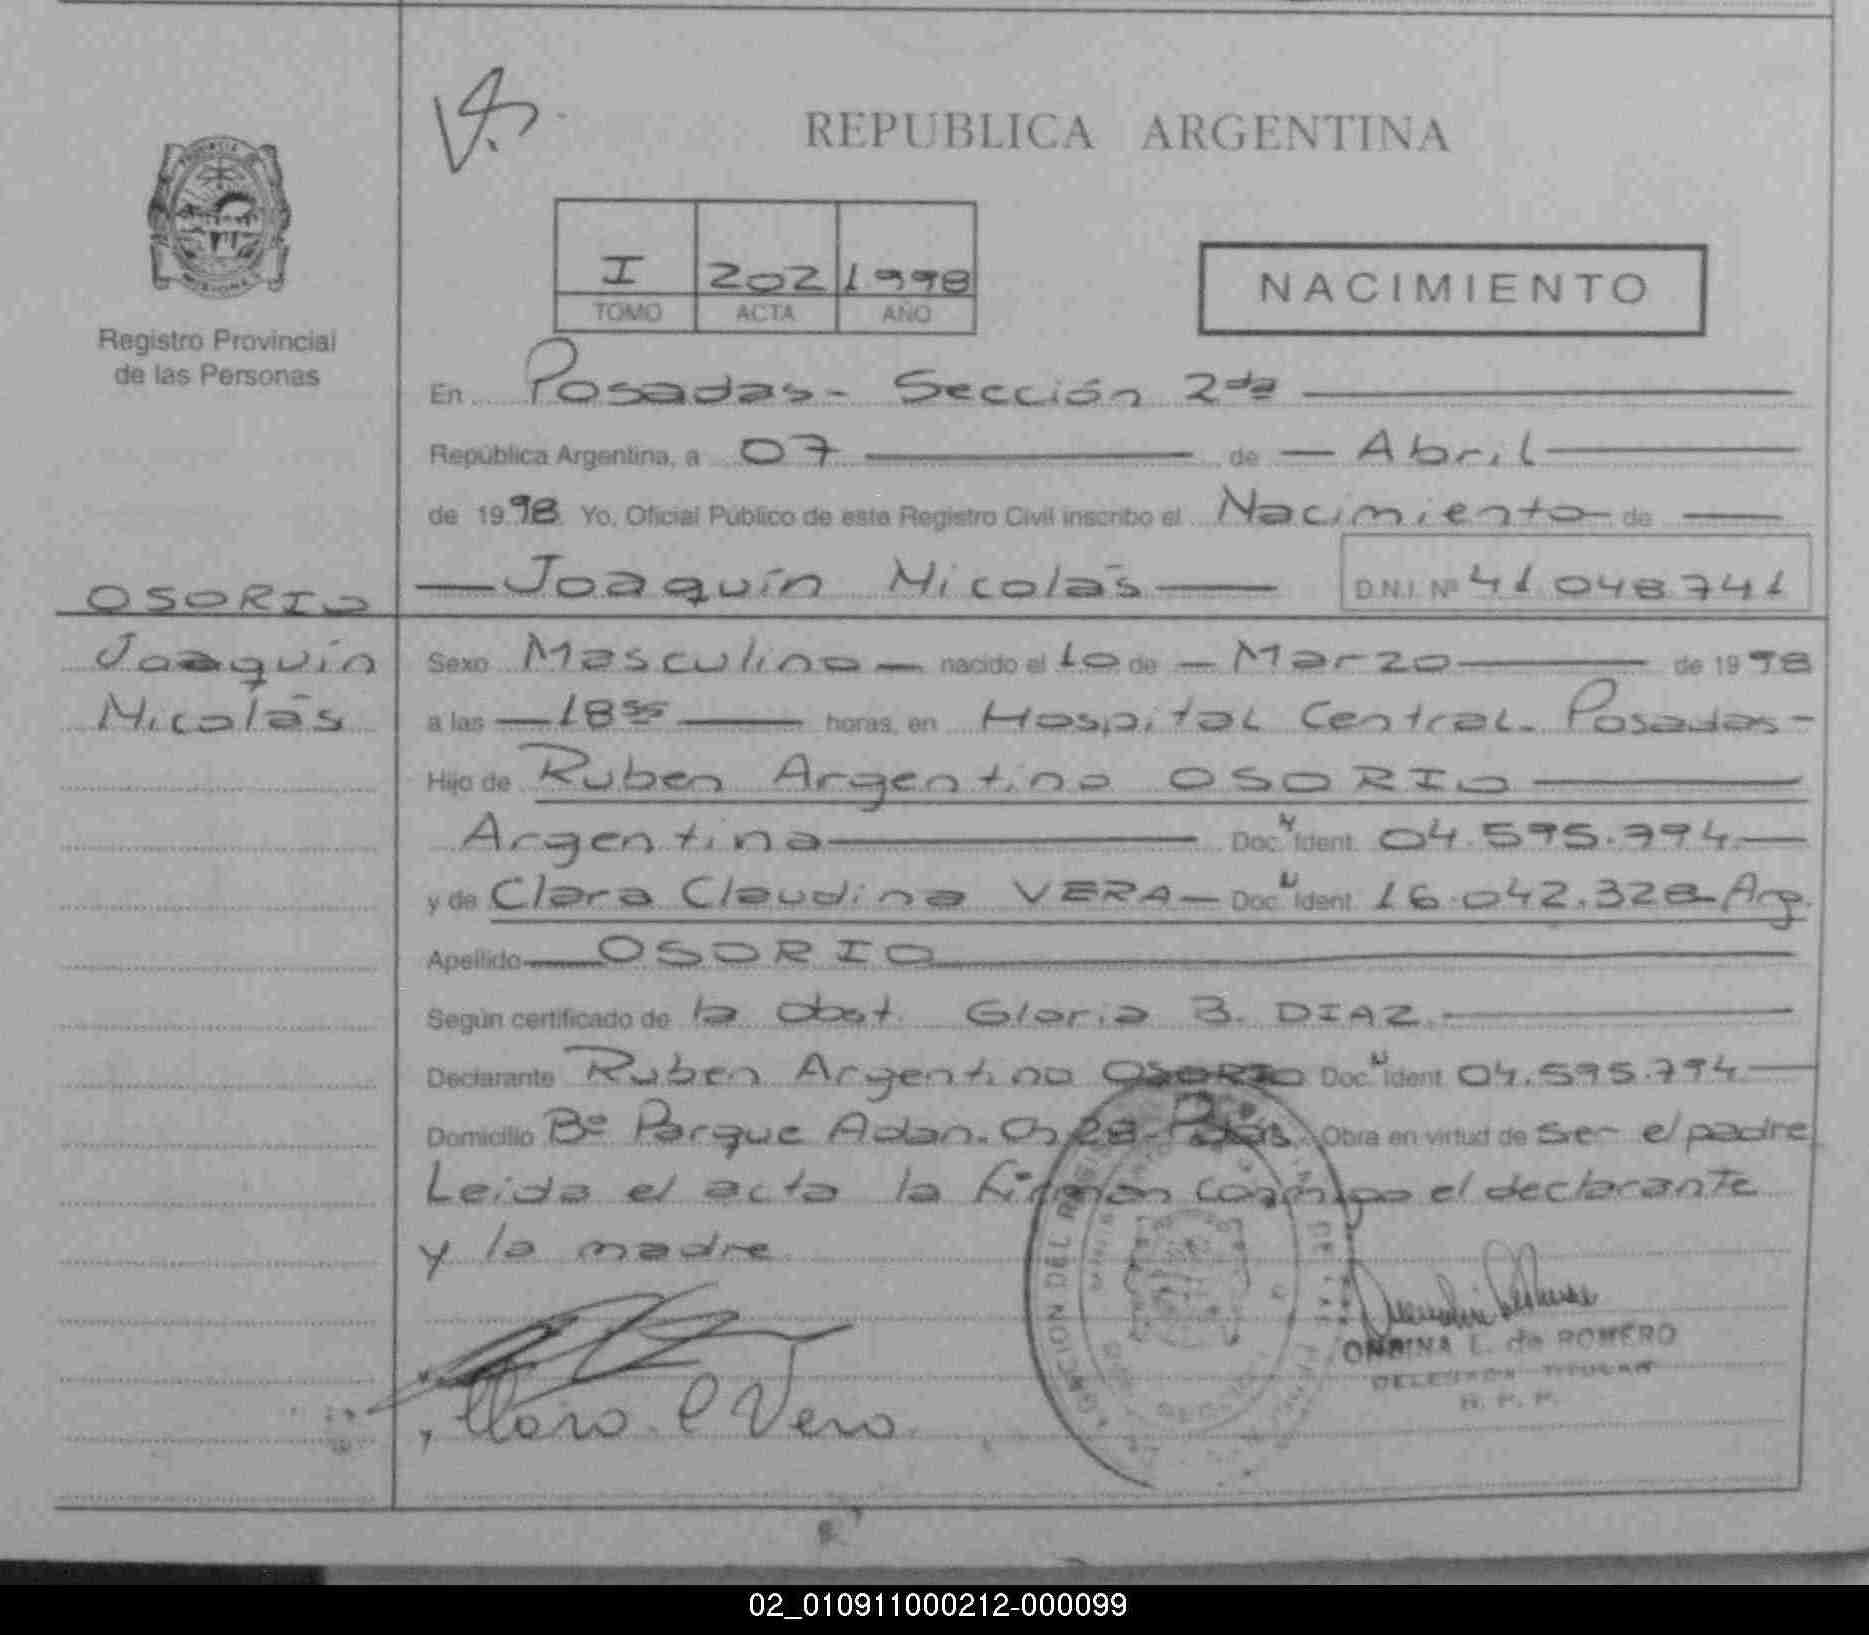 REPUBLICA ARGENTINA
I 202 1998
TOMO ACTA AÑO
NACIMIENTO
Registro Provincial
de las Personas
En Posadas - Sección 2da
República Argentina, a 07 de Abril
de 1998 Yo, Oficial Público de este Registro Civil inscribo el Nacimiento de
Joaquín Nicolás D.N.I. Nº 41 048.741
OSORIO
Joaquín
Nicolás
Sexo Masculino nacido el 10 de Marzo de 1998
a las 18 55 horas, en Hospital Central - Posadas -
Hijo de Ruben Argentino OSORIO
Argentina Doc. N Ident. 04.595.794
y de Clara Claudina VERA Doc. N Ident. 16.042.328 - Arg.
Apellido OSORIO
Según certificado de la Obst. Gloria B. DIAZ.
Declarante Ruben Argentino OSORIO Doc. N Ident. 04.595.794
Domicilio Bº Parque Adan. 28 - Pdas. Obra en virtud de ser el padre
Leida el acta la firman conmigo el declarante
y la madre
Clara C Vera
ONDINA L. de ROMERO
DELEGADA TITULAR
R. P. P.
02_010911000212-000099